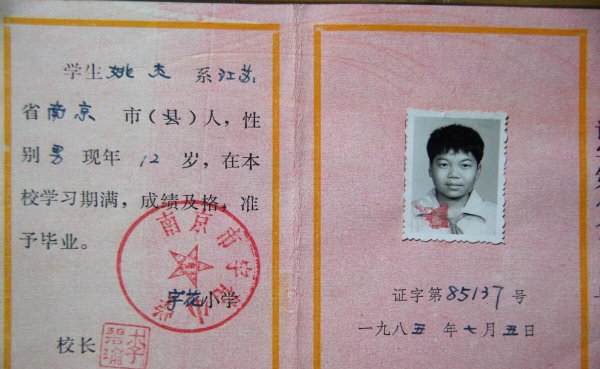 学生姚 系江苏
省南京市（县）人，性
别男现年12岁，在本
校学习期满，成绩及格，准
予毕业。
南京市宇花小学
宇花小学
校长
碧瑜
证字第85137号
一九八五年七月五日